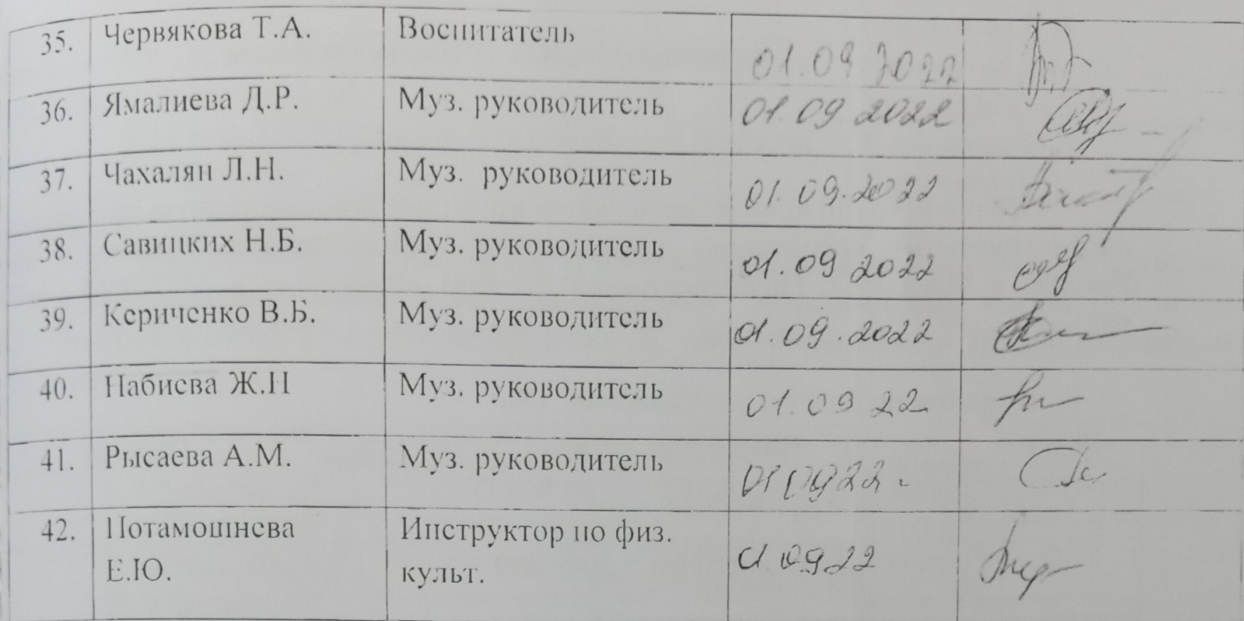 35. Червякова Т.А. Воспитатель 01.09 2022
36. Ямалиева Д.Р. Муз. руководитель 01.09 2022
37. Чахалян Л.Н. Муз. руководитель 01.09.2022
38. Савицких Н.Б. Муз. руководитель 01.09 2022
39. Кериченко В.Б. Муз. руководитель 01.09.2022
40. Набиева Ж.Н Муз. руководитель 01.09 22
41. Рысаева А.М. Муз. руководитель 01.0922.
42. Потамошнева Инструктор по физ. 01.0922
Е.Ю. культ.